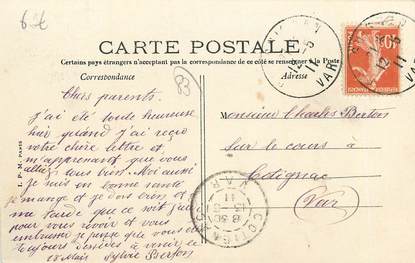 6€
CARTE POSTALE
Certains pays étrangers n'acceptant pas la correspondance de ce côté se renseigner à la Poste
Correspondance
Adresse
83
VAR
Chers parents.
J'ai été toute heureuse
hier quand j'ai reçu
votre chère lettre et
m'apprenant que vous
alliez tous bien. Moi aussi
je suis en bonne santé
je mange et je dors bien et
me tarde que ce soit
pour vous revoir et vous
embrasser je pense que vous
toujours décidés à venir le
Sylvie Berton
Monsieur Charles Berton
sur le cours à
Cotignac
Var
I. P. M. PARIS
COTIGNAC
VAR